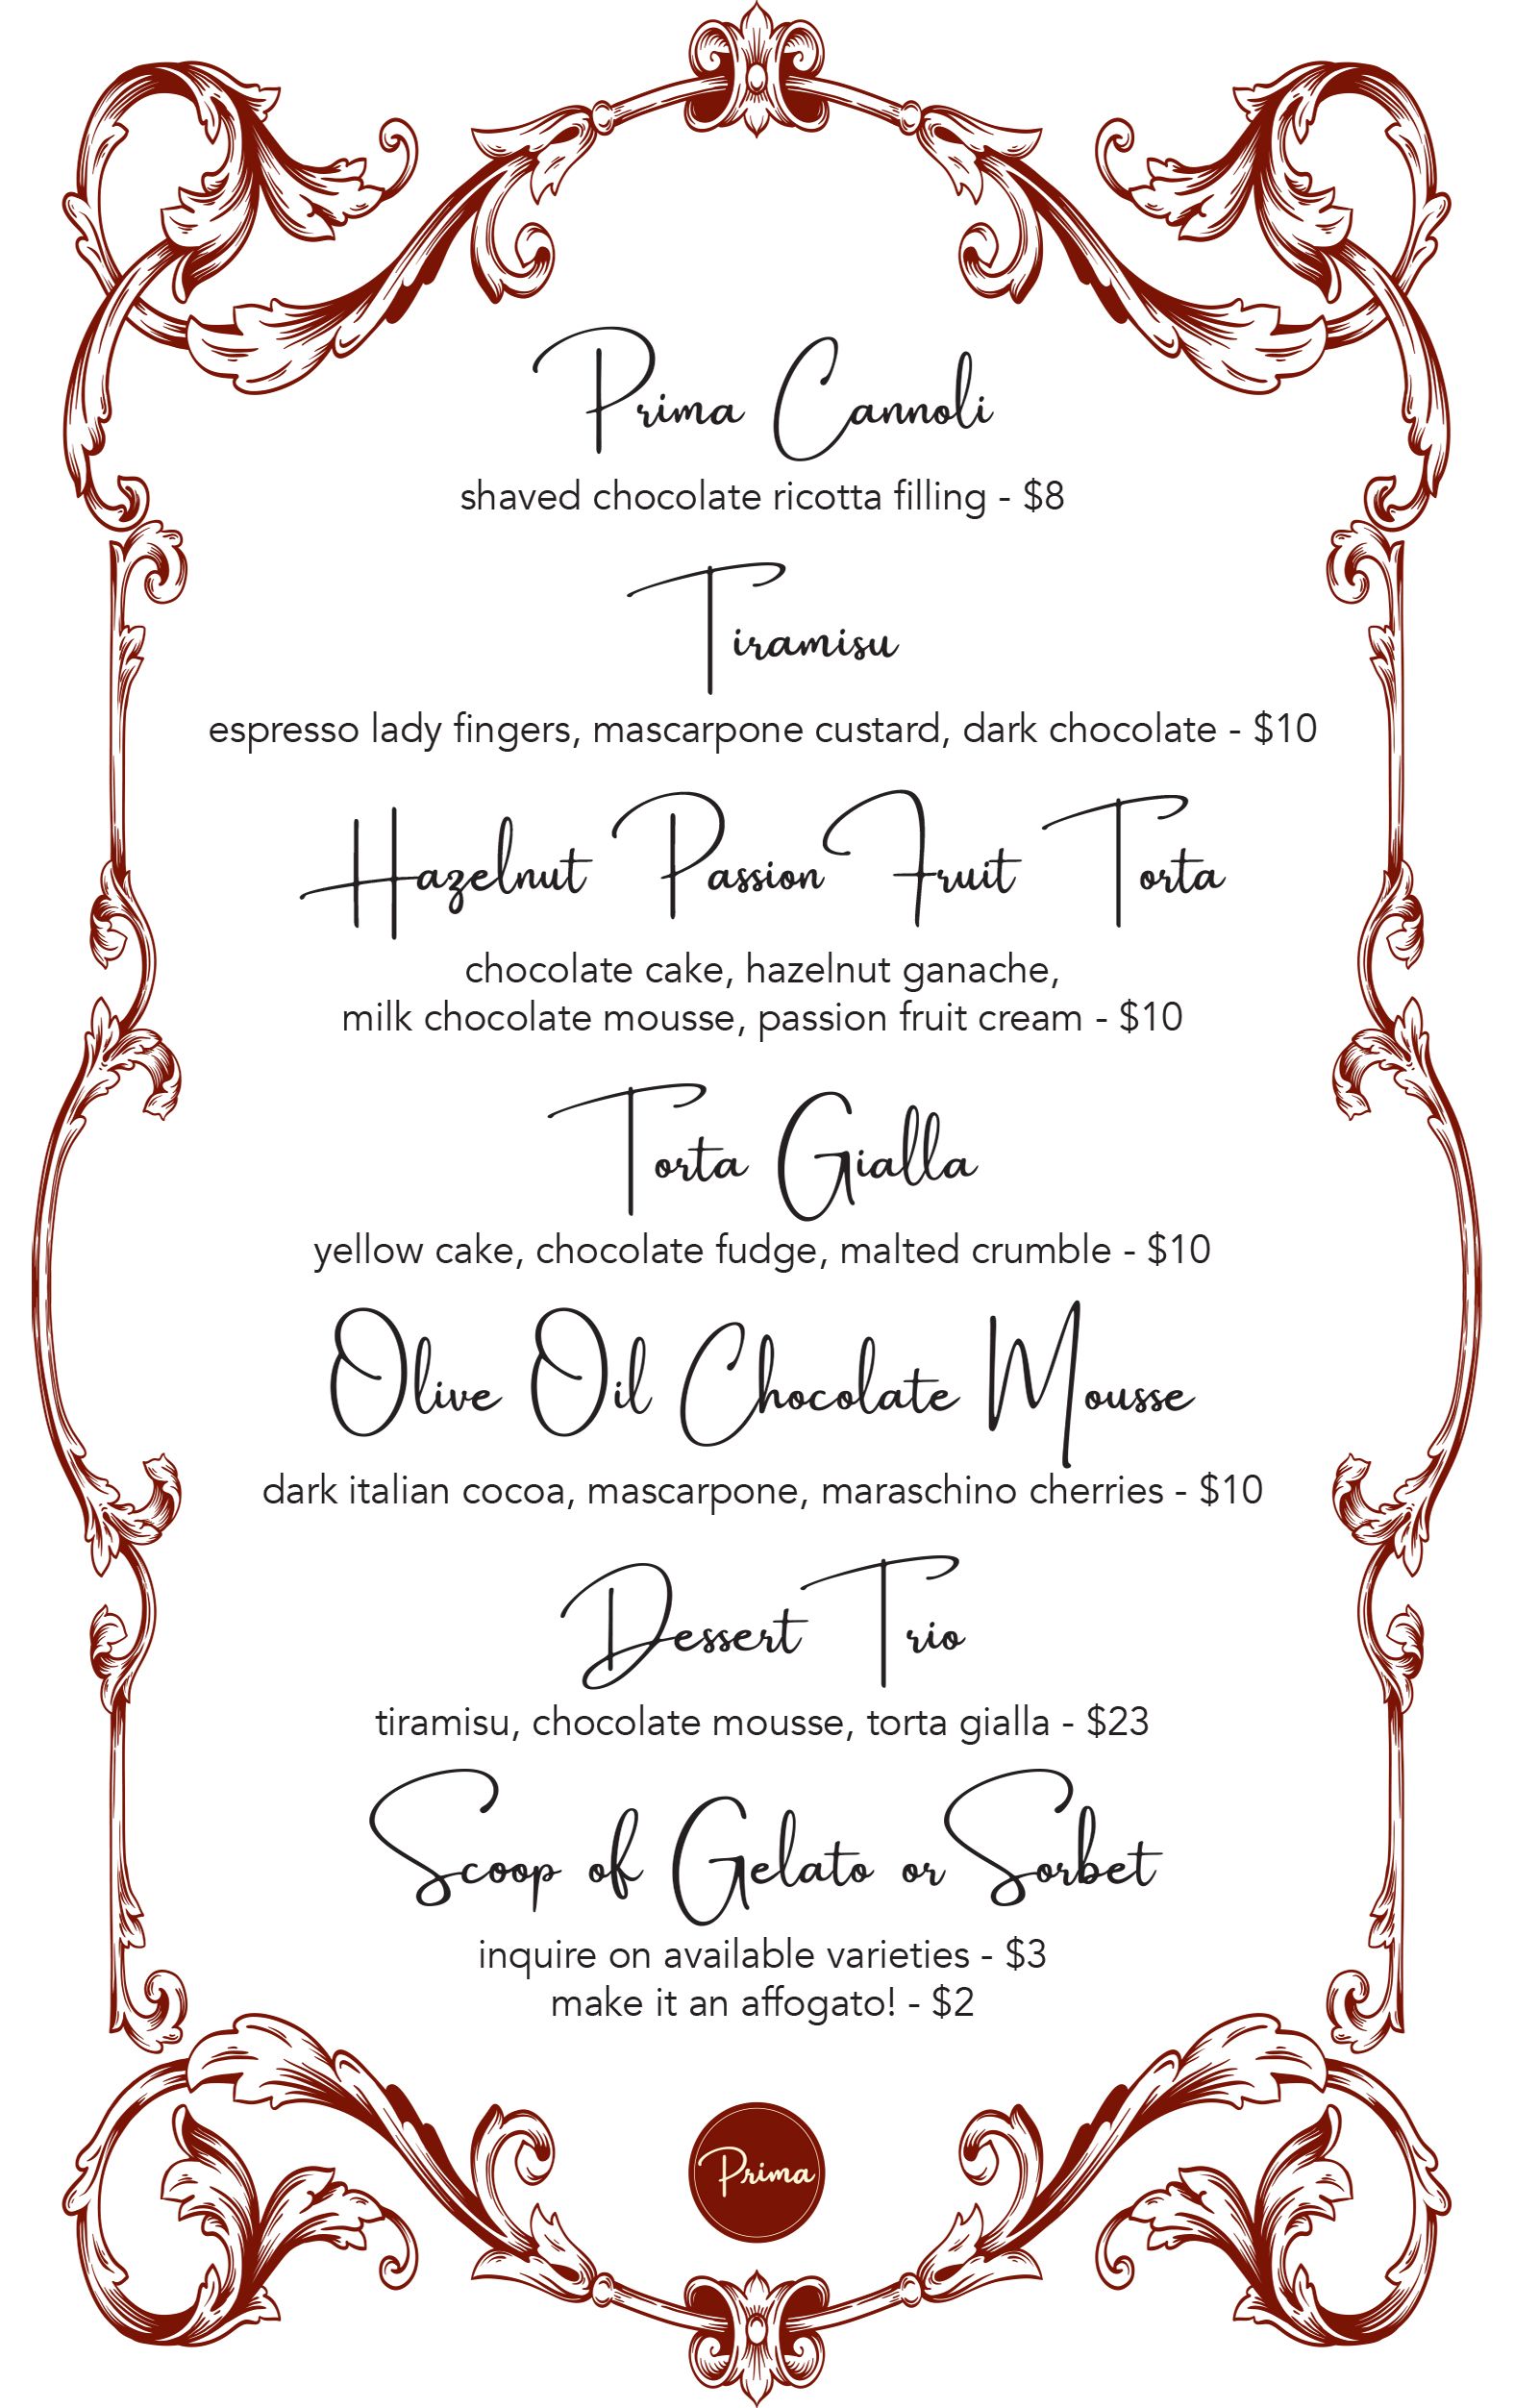 Prima Cannoli
shaved chocolate ricotta filling - $8
Tiramisu
espresso lady fingers, mascarpone custard, dark chocolate - $10
Hazelnut Passion Fruit Torta
chocolate cake, hazelnut ganache,
milk chocolate mousse, passion fruit cream - $10
Torta Gialla
yellow cake, chocolate fudge, malted crumble - $10
Olive Oil Chocolate Mousse
dark italian cocoa, mascarpone, maraschino cherries - $10
Dessert Trio
tiramisu, chocolate mousse, torta gialla - $23
Scoop of Gelato or Sorbet
inquire on available varieties - $3
make it an affogato! - $2
Prima